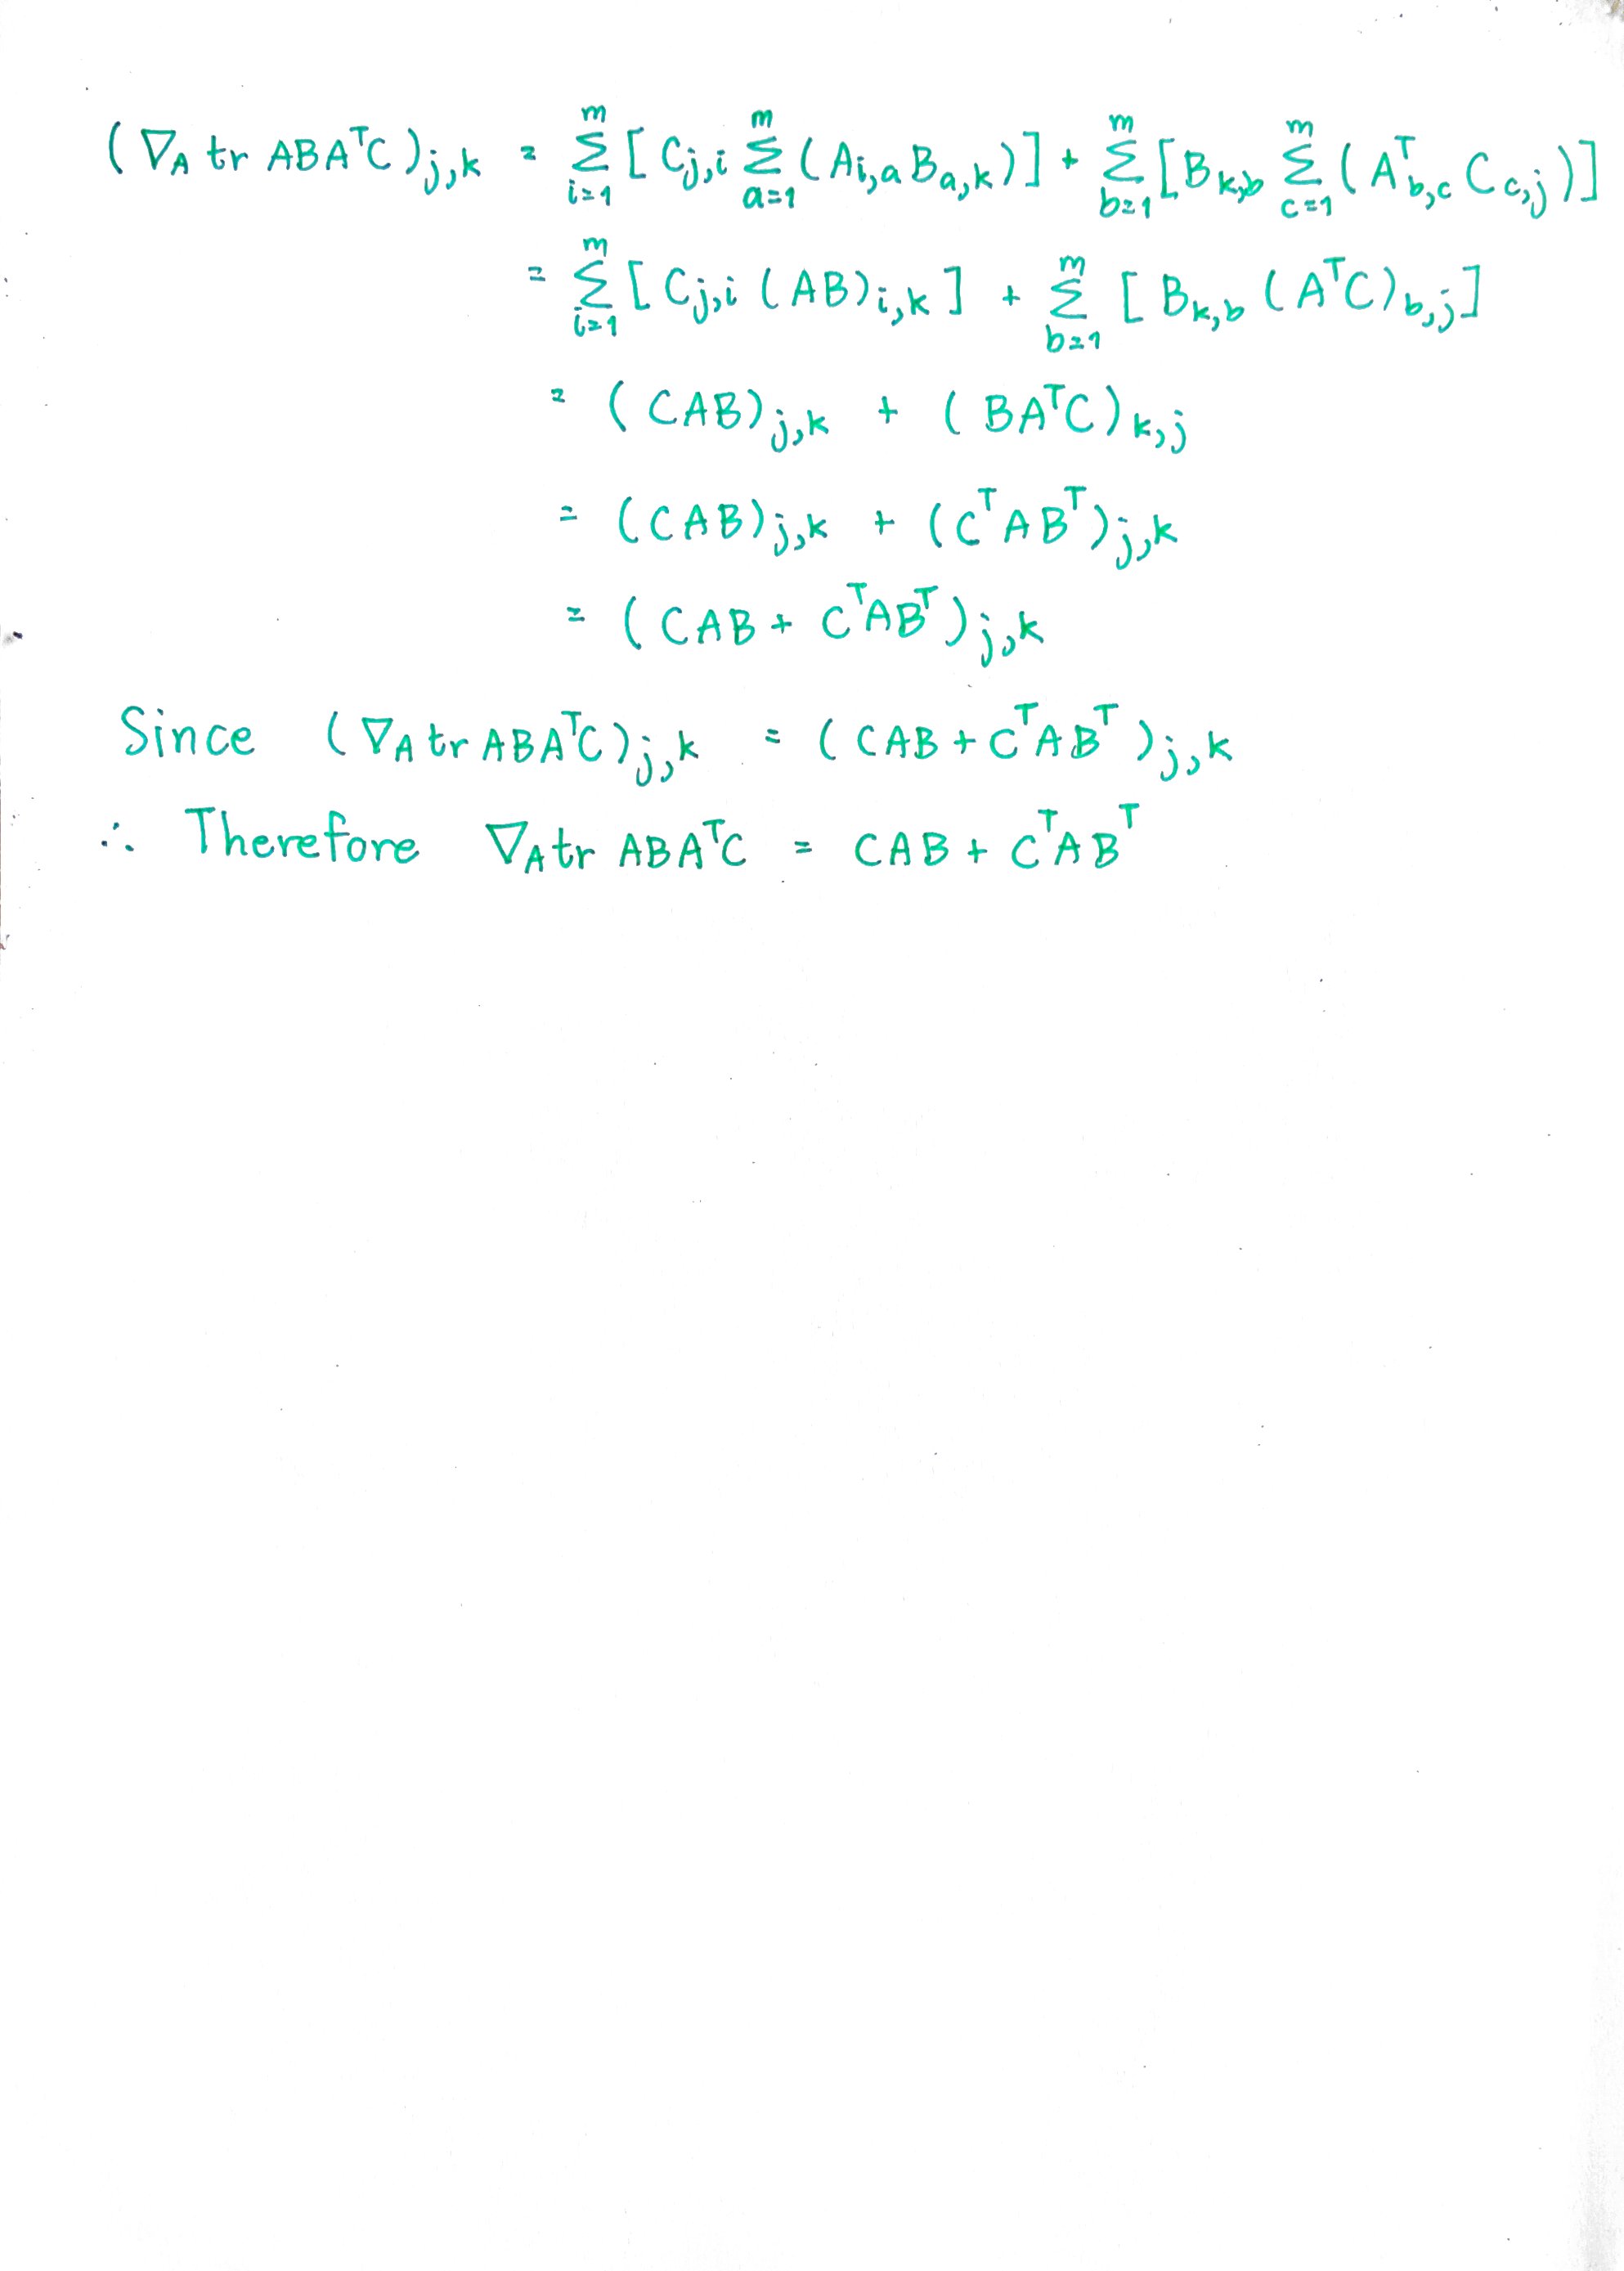 (∇_A tr ABA^T C)_{j,k} = \sum_{i=1}^{m} [ C_{j,i} \sum_{a=1}^{m} ( A_{i,a} B_{a,k} ) ] + \sum_{b=1}^{m} [ B_{k,b} \sum_{c=1}^{m} ( A^T_{b,c} C_{c,j} ) ]
= \sum_{i=1}^{m} [ C_{j,i} (AB)_{i,k} ] + \sum_{b=1}^{m} [ B_{k,b} (A^T C)_{b,j} ]
= (CAB)_{j,k} + (BA^T C)_{k,j}
= (CAB)_{j,k} + (C^T AB^T)_{j,k}
= (CAB + C^T AB^T)_{j,k}
Since (∇_A tr ABA^T C)_{j,k} = (CAB + C^T AB^T)_{j,k}
∴ Therefore ∇_A tr ABA^T C = CAB + C^T AB^T